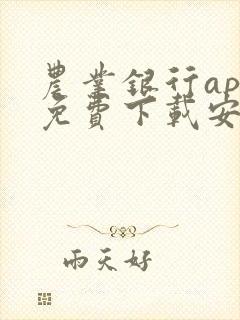 農業銀行ap
免費下載安
雨天好